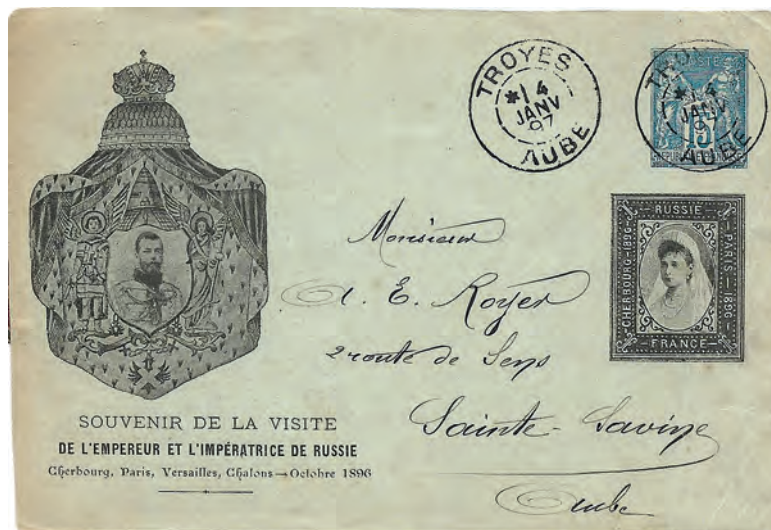 TROYES
*14
JANV
97
AUBE
TROYES
*14
JANV
97
AUBE
15
RUSSIE
CHERBOURG-1896
PARIS-1896
FRANCE
Monsieur
A. E. Royer
2 route de Sens
Sainte-Savine
Aube
SOUVENIR DE LA VISITE
DE L'EMPEREUR ET L'IMPÉRATRICE DE RUSSIE
Cherbourg, Paris, Versailles, Chalons—Octobre 1896